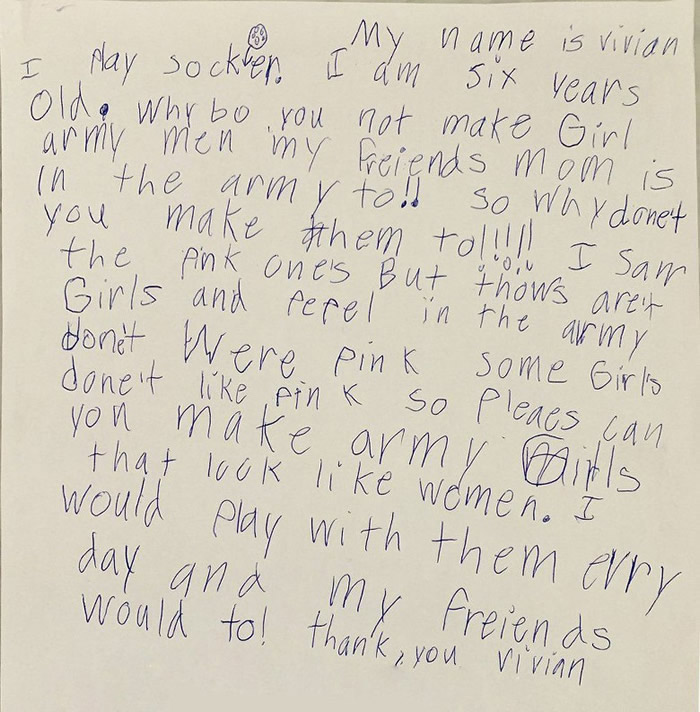 My name is vivian
I play socker. I am six years
old. Why bo you not make Girl
army men my freiends mom is
in the army to!! so why donet
you make them to!!!!! I saw
the pink one's But thows are't
Girls and pepel in the army
donet Were pink some Girls
done't like pink so pleaes can
you make army Girls
that look like women. I
would play with them evry
day and my freiends
would to! thank, you vivian